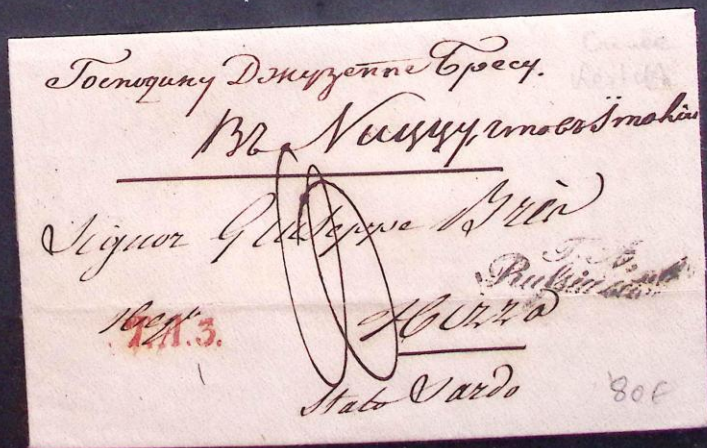 Господину Джузеппе Бресу.
Въ Ниццу, что въ Италіи
Signor Giuseppe Brès
T. A.
Nizza
T.A.3.
Stato Sardo
80€